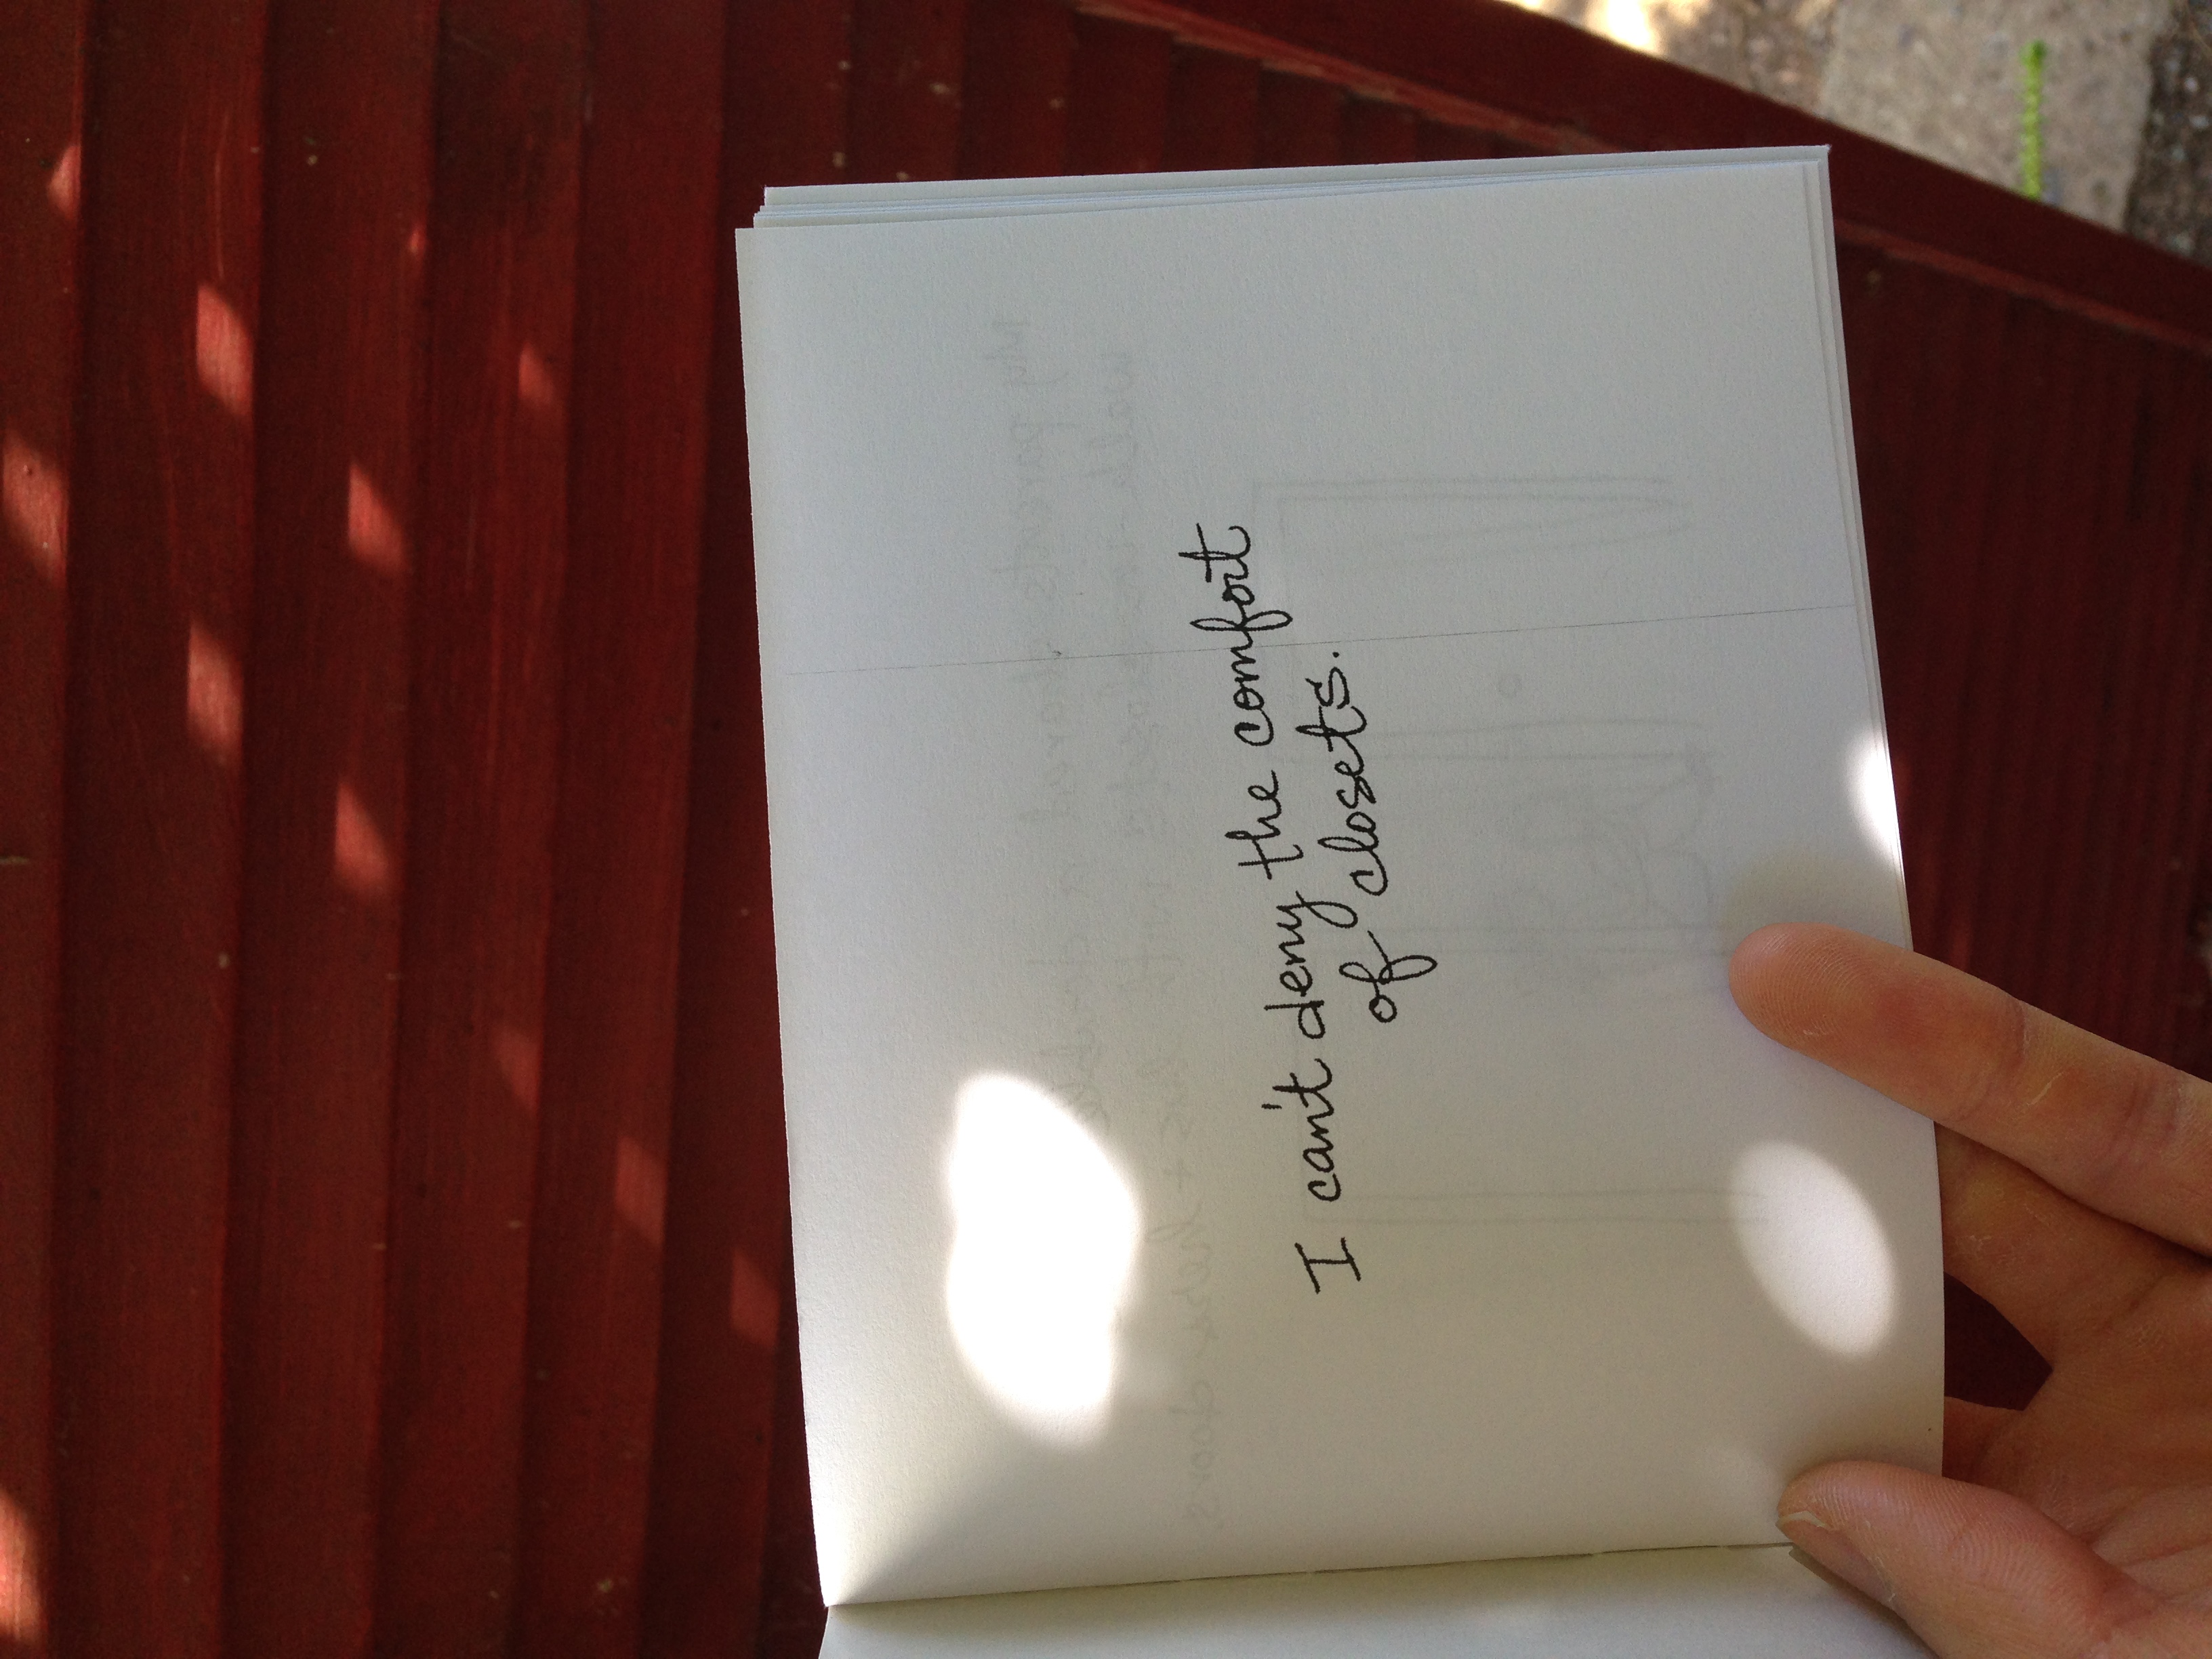 I can't deny the comfort
of closets.